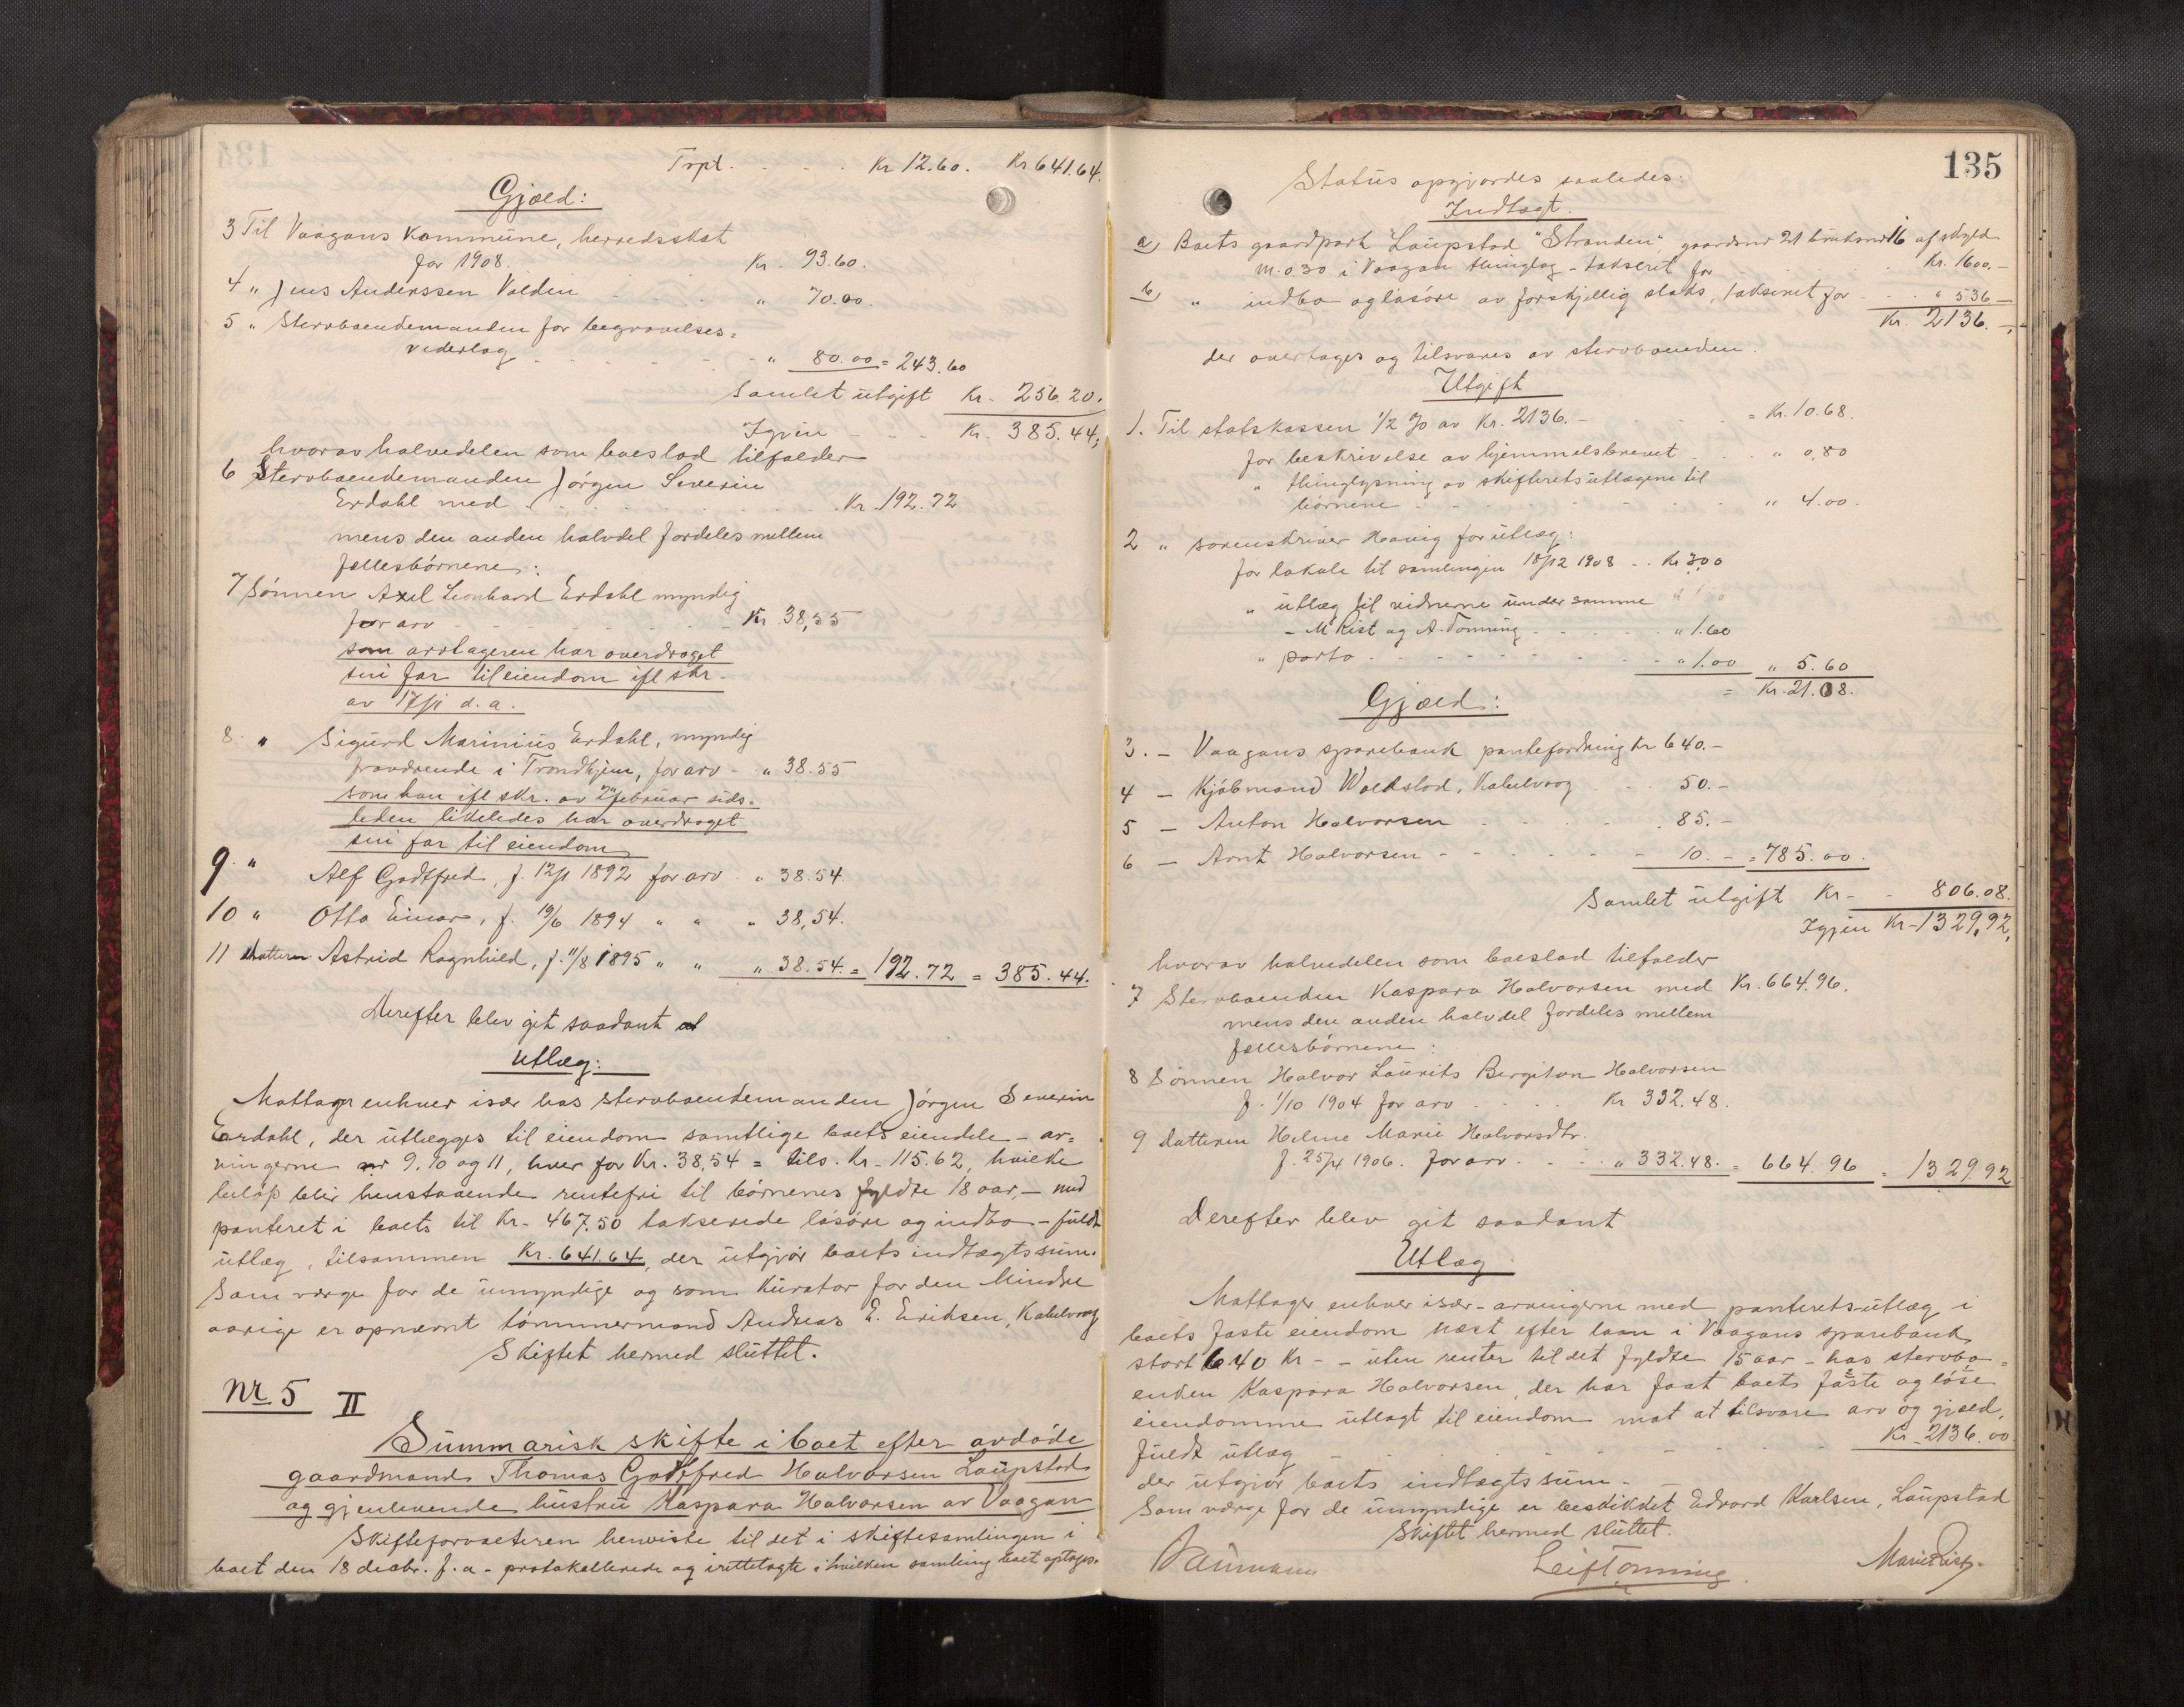 Trpt. - - - Kr 12.60. Kr 641.64.
Gjæld:
3 Til Vaagans kommune, herredsskat
for 1908. - - - Kr. 93.60.
4 " Jens Anderssen Valden - - - " 70.00.
5 " Stervboendemanden for begravelses-
vederlag - - - " 80.00 = 243.60
Samlet utgift Kr. 256.20.
Igjen - - - Kr. 385.44,
hvorav halvedelen som boeslod tilfalder
6 Stervboendemanden Jörgen Severin
Erdahl med - - - Kr. 192.72
mens den anden halvdel fordeles mellem
fællesbörnene:
7 Sönnen Axel Leonhard Erdahl myndig
for arv - - - Kr. 38,55
som arvtageren har overdraget
sin far til eiendom ifl skr.
av 17/1 d.a.
8. " Sigurd Marinius Erdahl, myndig
fraværende i Trondhjem, for arv - " 38.55
som han ifl skr. av 2 februar sids-
leden likeledes har overdraget
sin far til eiendom
9. " Alf Godtfred, f. 12/1 1892 for arv - " 38.54.
10 " Otto Einar, f. 19/6 1894 " " " 38,54.
11 Datteren Astrid Ragnhild, f. 11/8 1895 " " " 38.54. = 192.72 = 385.44.
Derefter blev git saadant
Utlæg:
Mottager enhver især hos stervboendemanden Jörgen Severin
Erdahl, der utlægges til eiendom samtlige boets eiendele - ar-
vingerne nr 9, 10 og 11, hver for Kr. 38,54 = tils. Kr. 115.62, hvilke
belöp blir henstaaende rentefri til börnenes fyldte 18 aar, - med
panteret i boets til Kr. 467.50 takserede lösöre og indbo - fuldt
utlæg, tilsammen Kr. 641.64, der utgjör boets indtægtssum.
Som værge for de umyndige og som kurator for den Mindre
aarige er opnævnt tömmermand Andreas E. Eriksen, Kabelvaag
Skiftet hermed sluttet.
Nr 5 II
Summarisk skifte i boet efter avdöde
gaardmand Thomas Godtfred Halvorsen Laupstad
og gjenlevende hustru Kaspara Halvorsen av Vaagan
Skifteforvalteren henviste til det i skiftesamlingen i
boet den 18 decbr. f.a. protokollerede og irettelagte i hvilken samling boet optoges.
135
Status opgjordes saaledes:
Indtægt.
a) Boets gaardpart Laupstad "Stranden" gaardsnr 21 bruksnr 16 af skyld
m. 0.30 i Vaagan thinglag - takseret for - - - Kr. 1600.-
b) " indbo og lösöre av forskjellig slags, takseret for - - " 536 -
Kr. 2136. -,
der overtages og tilsvares av stervboenden.
Utgift
1. Til statskassen 1/2 % av Kr. 2136.- - - - = Kr. 10.68.
for beskrivelse av hjemmelsbrevet - - " 0,80
" thinglysning av skifteretsutlægene til
börnene - - - " 4.00.
2 " sorenskriver Havig for utlæg:
for lokale til samlingen 18/12 1908 - - Kr 3.00
" utlæg til vidnerne under samme
- M Rist og A. Tonning - - - " 1.60
" porto - - - " 1.00 " 5.60
= Kr. 21.08.
Gjæld:
3. - Vaagans sparebank pantefordring Kr 640.-
4 - Kjöbmand Woldstad, Kabelvaag - - 50.-
5 - Anton Halvorsen - - - 85.-
6 - Arnt Halvorsen - - - 10.- = 785.00.
Samlet utgift Kr - - 806.08.
Igjen Kr - 1329,92,
hvorav halvedelen som boeslod tilfalder
7 Stervboenden Kaspara Halvorsen med Kr. 664.96.
mens den anden halvdel fordeles mellem
fællesbörnene:
8 Sönnen Halvor Laurits Bergiton Halvorsen
f. 1/10 1904 for arv - - - Kr 332.48.
9 Datteren Helene Marie Halvorsdtr.
f. 25/4 1906. for arv - - - " 332.48. = 664.96 = 1329.92
Derefter blev git saadant
Utlæg
Mottager enhver især - arvingerne med panteretsutlæg i
boets faste eiendom næst efter laan i Vaagans sparebank
stort 640 Kr - - uten renter til det fyldte 15 aar - hos stervbo-
enden Kaspara Halvorsen, der har faat boets faste og löse
eiendomme utlagt til eiendom mot at tilsvare arv og gjæld,
fuldt utlæg - - - Kr. 2136.00
der utgjör boets indtægtssum -
Som værge for de umyndige er beskikket Edvard Karlsen, Laupstad
Skiftet hermed sluttet.
Leif Tonning. Marie Rist.